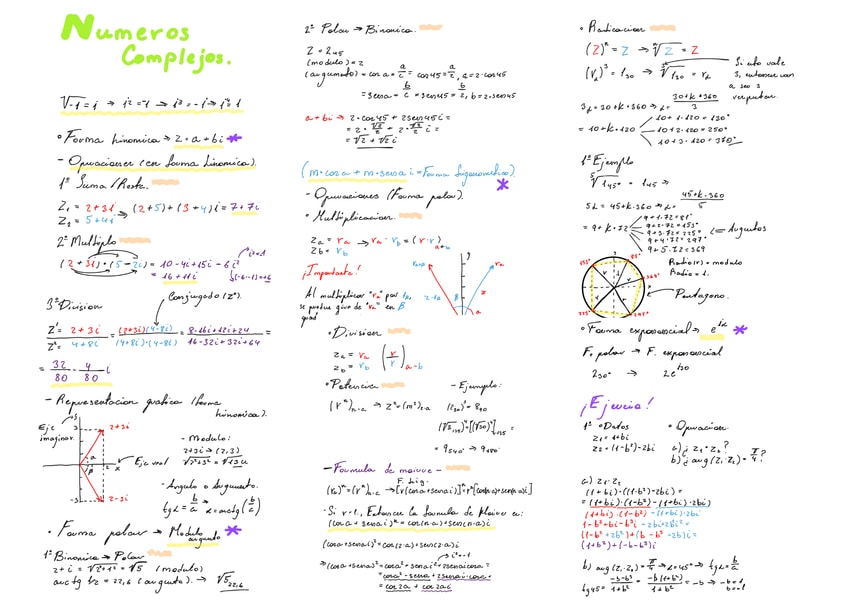 Numeros
Complejos.
√-1 = i → i² = -1 → i³ = -i → i⁴ = 1
• Forma binomica → z = a + bi *
- Operaciones (en forma binomica).
1º Suma/Resta.
Z₁ = 2+3i
Z₂ = 5+4i → (2+5)+(3+4)i = 7+7i
2º Multiplo
(2+3i)·(5-2i) = 10-4i+15i-6i²
i² = -1
= 16+11i
(-6·-1) = +6
3º Division
Conjugado (Z*).
(2+3i)(4-8i)
(4+8i)·(4-8i)
16-32i+32i+64
= 32/80 - 4/80 i
- Representacion grafica (forma
binomica).
Eje
imaginar.
3
2+3i
α
β
2
x
Eje real
-3
2-3i
- Modulo:
2+3i → (2,3)
- Angulo o Argumento.
tgα = b/a → α = arctg(b/a)
• Forma polar → Modulo
argumento *
1º Binomica → Polar
2+i = √2²+1² = √5 (modulo)
arctg 1/2 = 22,6 (argumento). → √5 22,6
2º Polar → Binomica.
Z = 2₄₅
(modulo) = 2
(argumento) = cosα = a/c = cos45 = a/2, a = 2·cos45
= senα = b/c = sen45 = b/2, b = 2·sen45
a+bi → 2·cos45 + 2sen45i =
= 2·√2/2 + 2·√2/2 i =
= √2 + √2i
(m·cosα + m·senα i = Forma trigonometrica)
*
- Operaciones (Forma polar).
• Multiplicacion
Zₐ = rₐ
Z_b = r_b → rₐ · r_b = (r·r)ₐ₊b
¡Importante!
Al multiplicar "rₐ" por r_b,
se produce giro de "rₐ" en β
grad
β
α
• Division
Zₐ = rₐ
Z_b = r_b (r/r)ₐ₋b
• Potencia
- Ejemplo:
= 9540° → 9180°
- Formula de moivre -
F. trig.
- Si r=1, Entonces la formula de Moivre es:
(cosα + senα i)ⁿ = cos(n·α) + sen(n·α)i
(cosα + senα i)² = cos(2·α) + sen(2·α)i
i² = -1
→ (cosα + senα i)² = cosα² + senα² i² + 2senα i cosα =
= cosα² - senα + 2senα i·cosα =
= cos2α + sen2α i
• Radicacion
(Z)ⁿ = Z → ⁿ√Z = Z
(r_α)³ = 1₃₀ → ³√1₃₀ = r_α
Si esto vale
3, entonces van
a ser 3
respuestas.
3α = 30+k·360 → α = 30+k·360/3
= 10+k·120
10+1·120 = 130°
10+2·120 = 250°
10+3·120 = 370°
1º Ejemplo
⁵√1₄₅° = 1₄₅ →
5α = 45+k·360 → α = 45+k·360/5
= 9+k·72
9+1·72 = 81°
9+2·72 = 153°
9+3·72 = 225°
9+4·72 = 297°
9+5·72 = 369
= Angulos
153°
81°
369°
225°
297°
Radio(r) = modulo
Radio = 1.
Pentagono.
• Forma exponencial → e^iα *
F. polar → F. exponencial
2₃₀° → 2e^i30
¡Ejercicio!
1º • Datos
Z₁ = 1+bi
Z₂ = (1-b²)-2bi
• Operacion
a) ¿Z₁·Z₂?
b) ¿arg(Z₁·Z₂) = π/4?
a) Z₁·Z₂
(1+bi)·((1-b²)-2bi) =
= (1+bi)·(1-b²)-(1+bi)·2bi)
(1+bi)·(1-b²)-(1+bi)·2bi)
1-b²+bi-b³i -2bi+2b² =
(1-b²+2b²)+(b-b³-2b)i
(1+b²)+(-b-b³)i
b) arg(Z₁·Z₂) = π/4 → α = 45° → tgα = b/a
tg45 = -b-b³/1+b² = -b(1+b²)/1+b² = -b → -b=1
b=-1